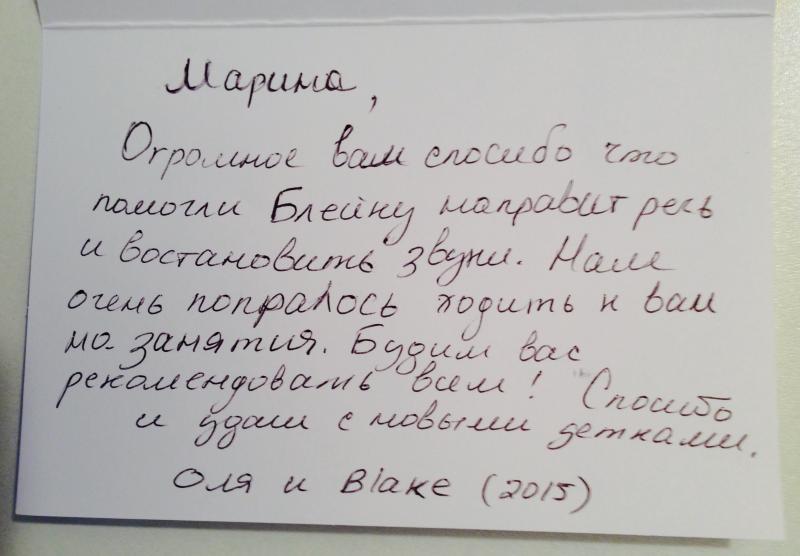 Марина,
Огромное вам спосибо что
помогли Блейну направит речь
и востановить звуки. Нам
очень попралось ходить к вам
на занятия. Будим вас
рекомендовать всем! Спосибо
и удачи с новыми детками.
Оля и Blake (2015)